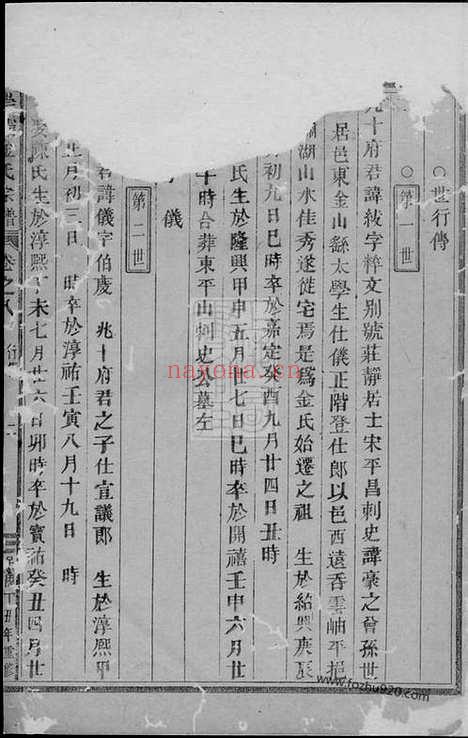 ○世行傳
○第一世
九十府君諱紱字粹文別號莊靜居士宋平昌刺史諱豪之曾孫世
居邑東金山緜太學生仕儀正階登仕郎以邑西遠吞雲岫平挹
湖山水佳秀遂徙宅焉是爲金氏始遷之祖 生於紹興庚辰
初九日巳時卒於嘉定癸酉九月廿四日丑時
氏生於隆興甲申五月廿七日巳時卒於開禧壬申六月廿
午時合葬東平山刺史公墓左
儀
第二世
君諱儀字伯慶 兆十府君之子仕宣議郎 生於淳熙甲
正月初三日 時卒於淳祐壬寅八月十九日 時
陳氏生於淳熙丁未七月廿六日卯時卒於寶祐癸丑四月廿
氏宗譜 卷之八
丁丑年重修
nayona.cn
www.fozhu920.com